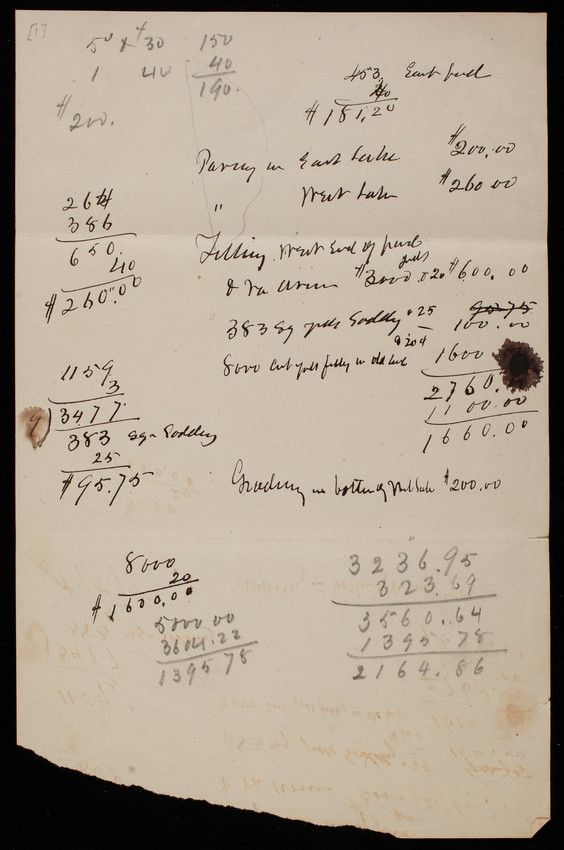 [1]
50 & 30 150
1 40 40
190.
$200.
453. East
40
$181,20
Paving in East Lake $200,00
" West Lake $260 00
264
386
650.
40
$260.00
Filling West End of
& $3000 yds @ 20 $600.00
383 Sq yds Sodding @ 25 95.75
100.00
8000 yds @ 20 1600
2760.
1100.00
1660.00
1159
3
9) 3477
383 Sqr Sodding
25
$95.75
Grading in bottom of West Lake $200.00
8000
20
$1600,00
5000 00
3604.22
1395 78
3236.95
323.69
3560.64
1395 78
2164.86